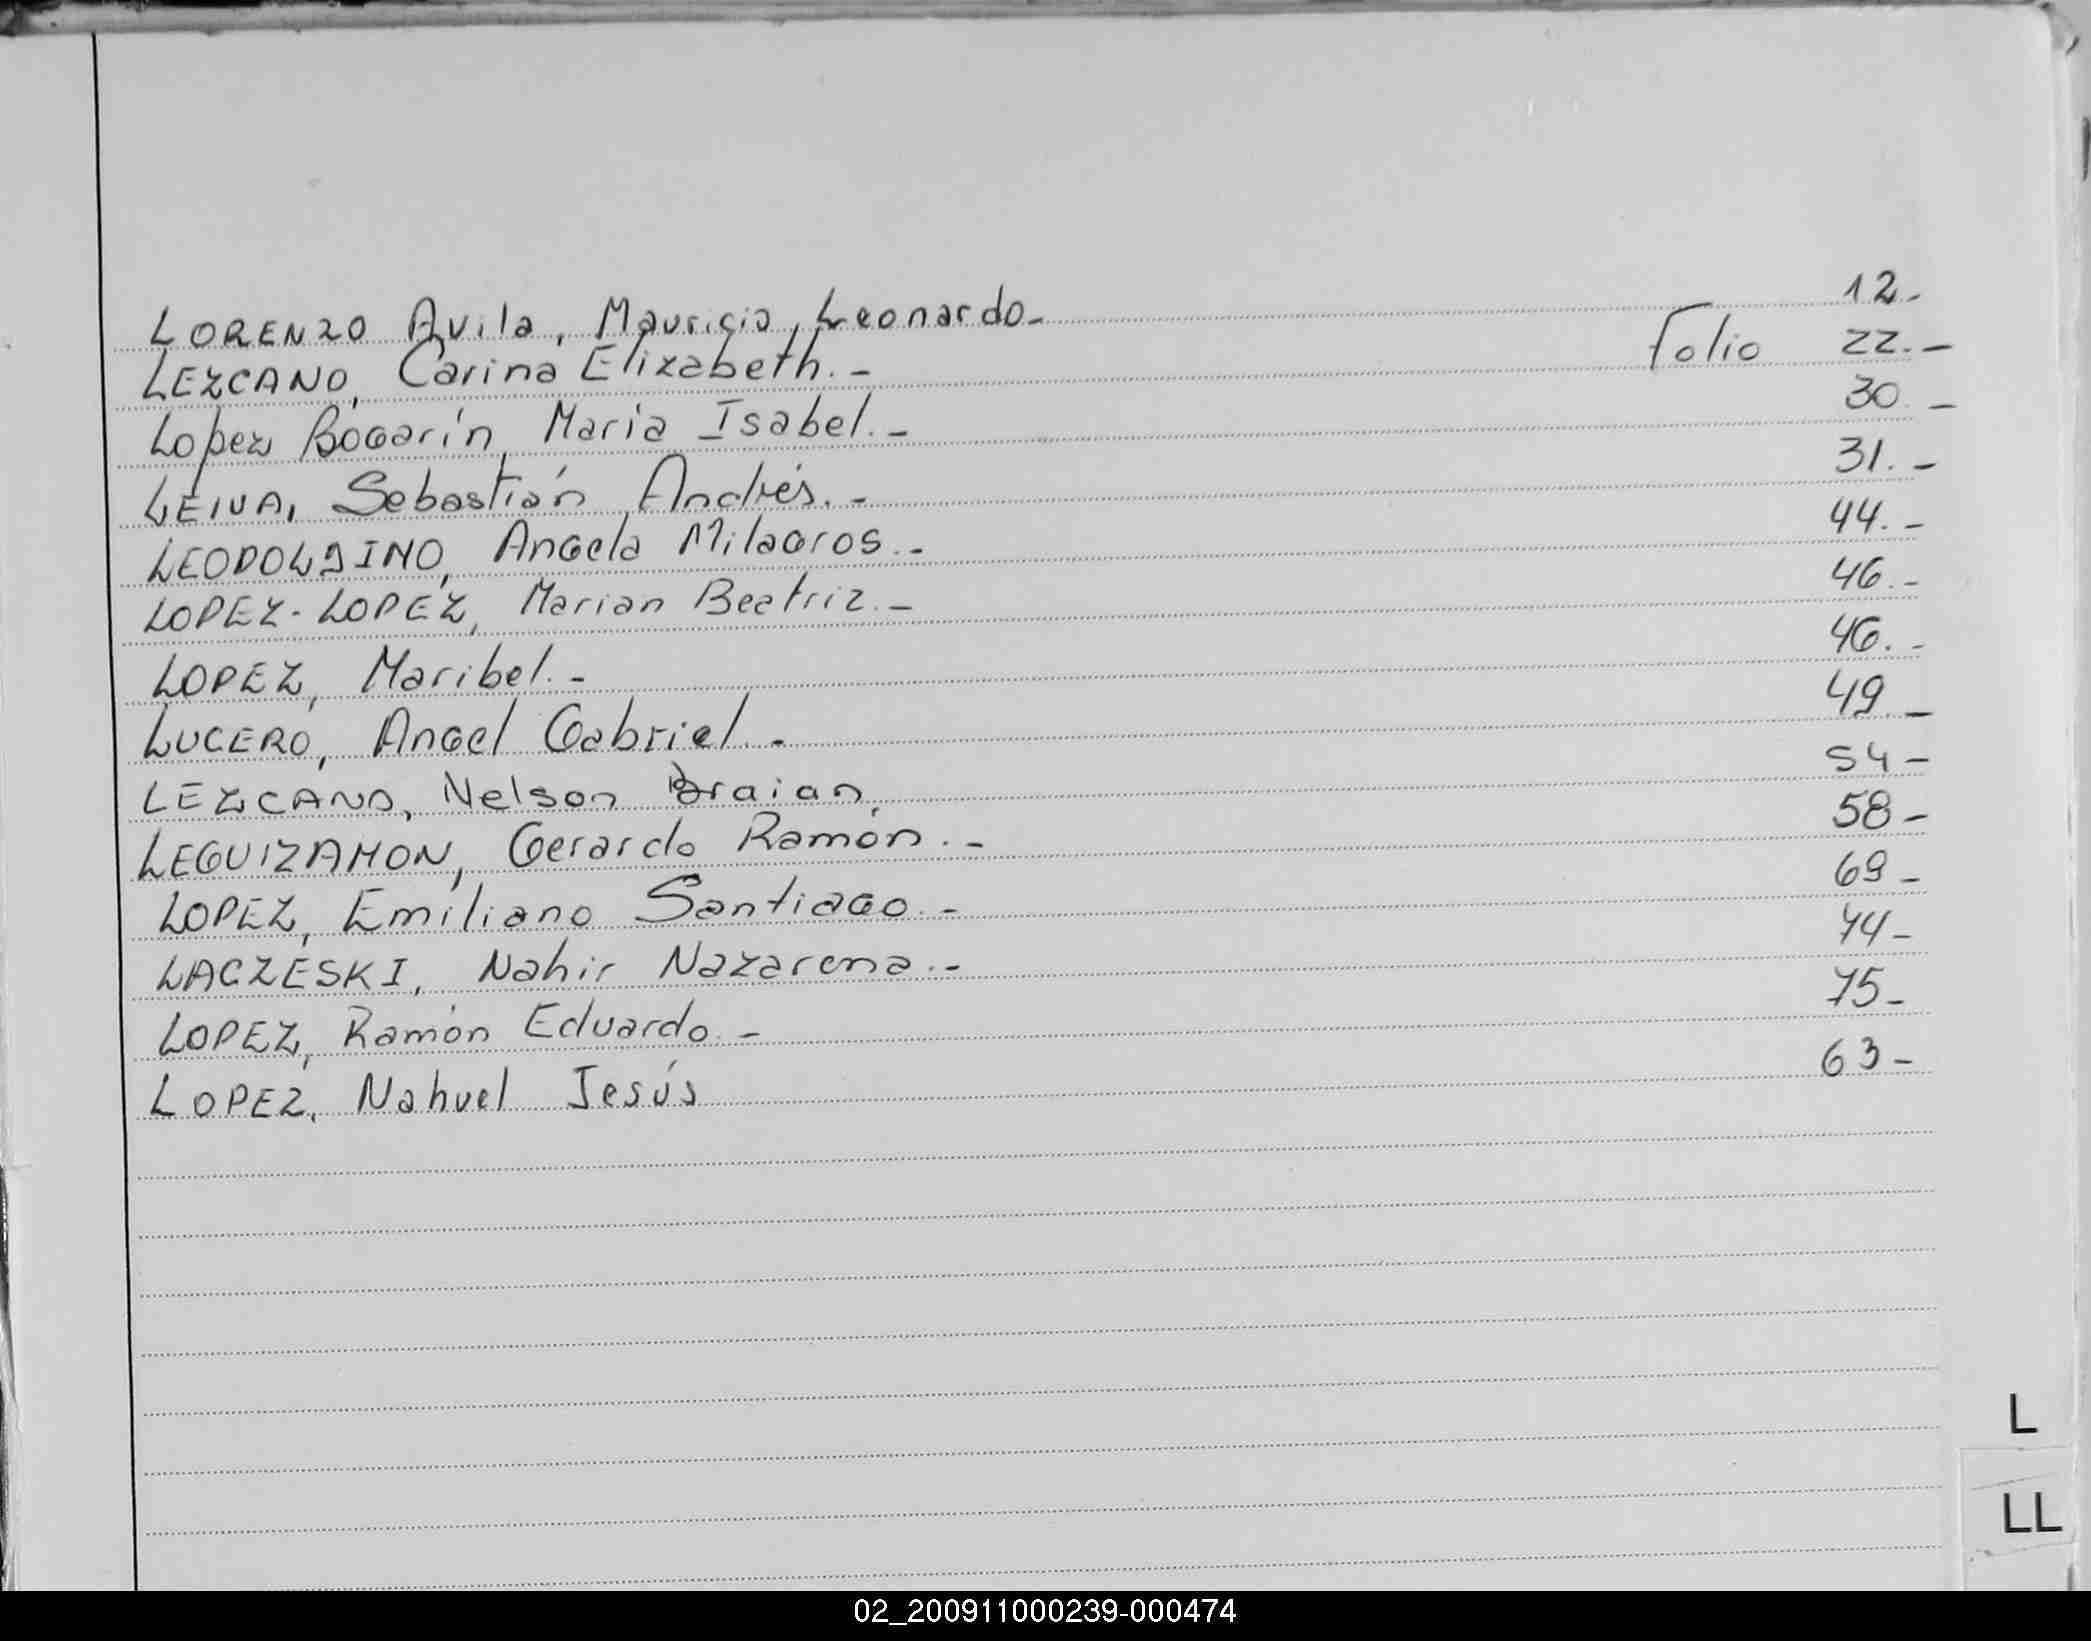 LORENZO Avila, Mauricio Leonardo.- 12.-
LEZCANO, Carina Elizabeth.- Folio 22.-
Lopez Bogarín, Maria Isabel.- 30.-
LEIVA, Sebastián Andrés.- 31.-
LEOPOLDINO, Angela Milagros.- 44.-
LOPEZ-LOPEZ, Marian Beatriz.- 46.-
LOPEZ, Maribel.- 46.-
LUCERO, Angel Gabriel.- 49.-
LEZCANO, Nelson Braian. 54-
LEGUIZAMON, Gerardo Ramón.- 58-
LOPEZ, Emiliano Santiago.- 69-
LACZESKI, Nahir Nazarena.- 74-
LOPEZ, Ramón Eduardo.- 75-
LOPEZ, Nahuel Jesús 63-
L
LL
02_200911000239-000474